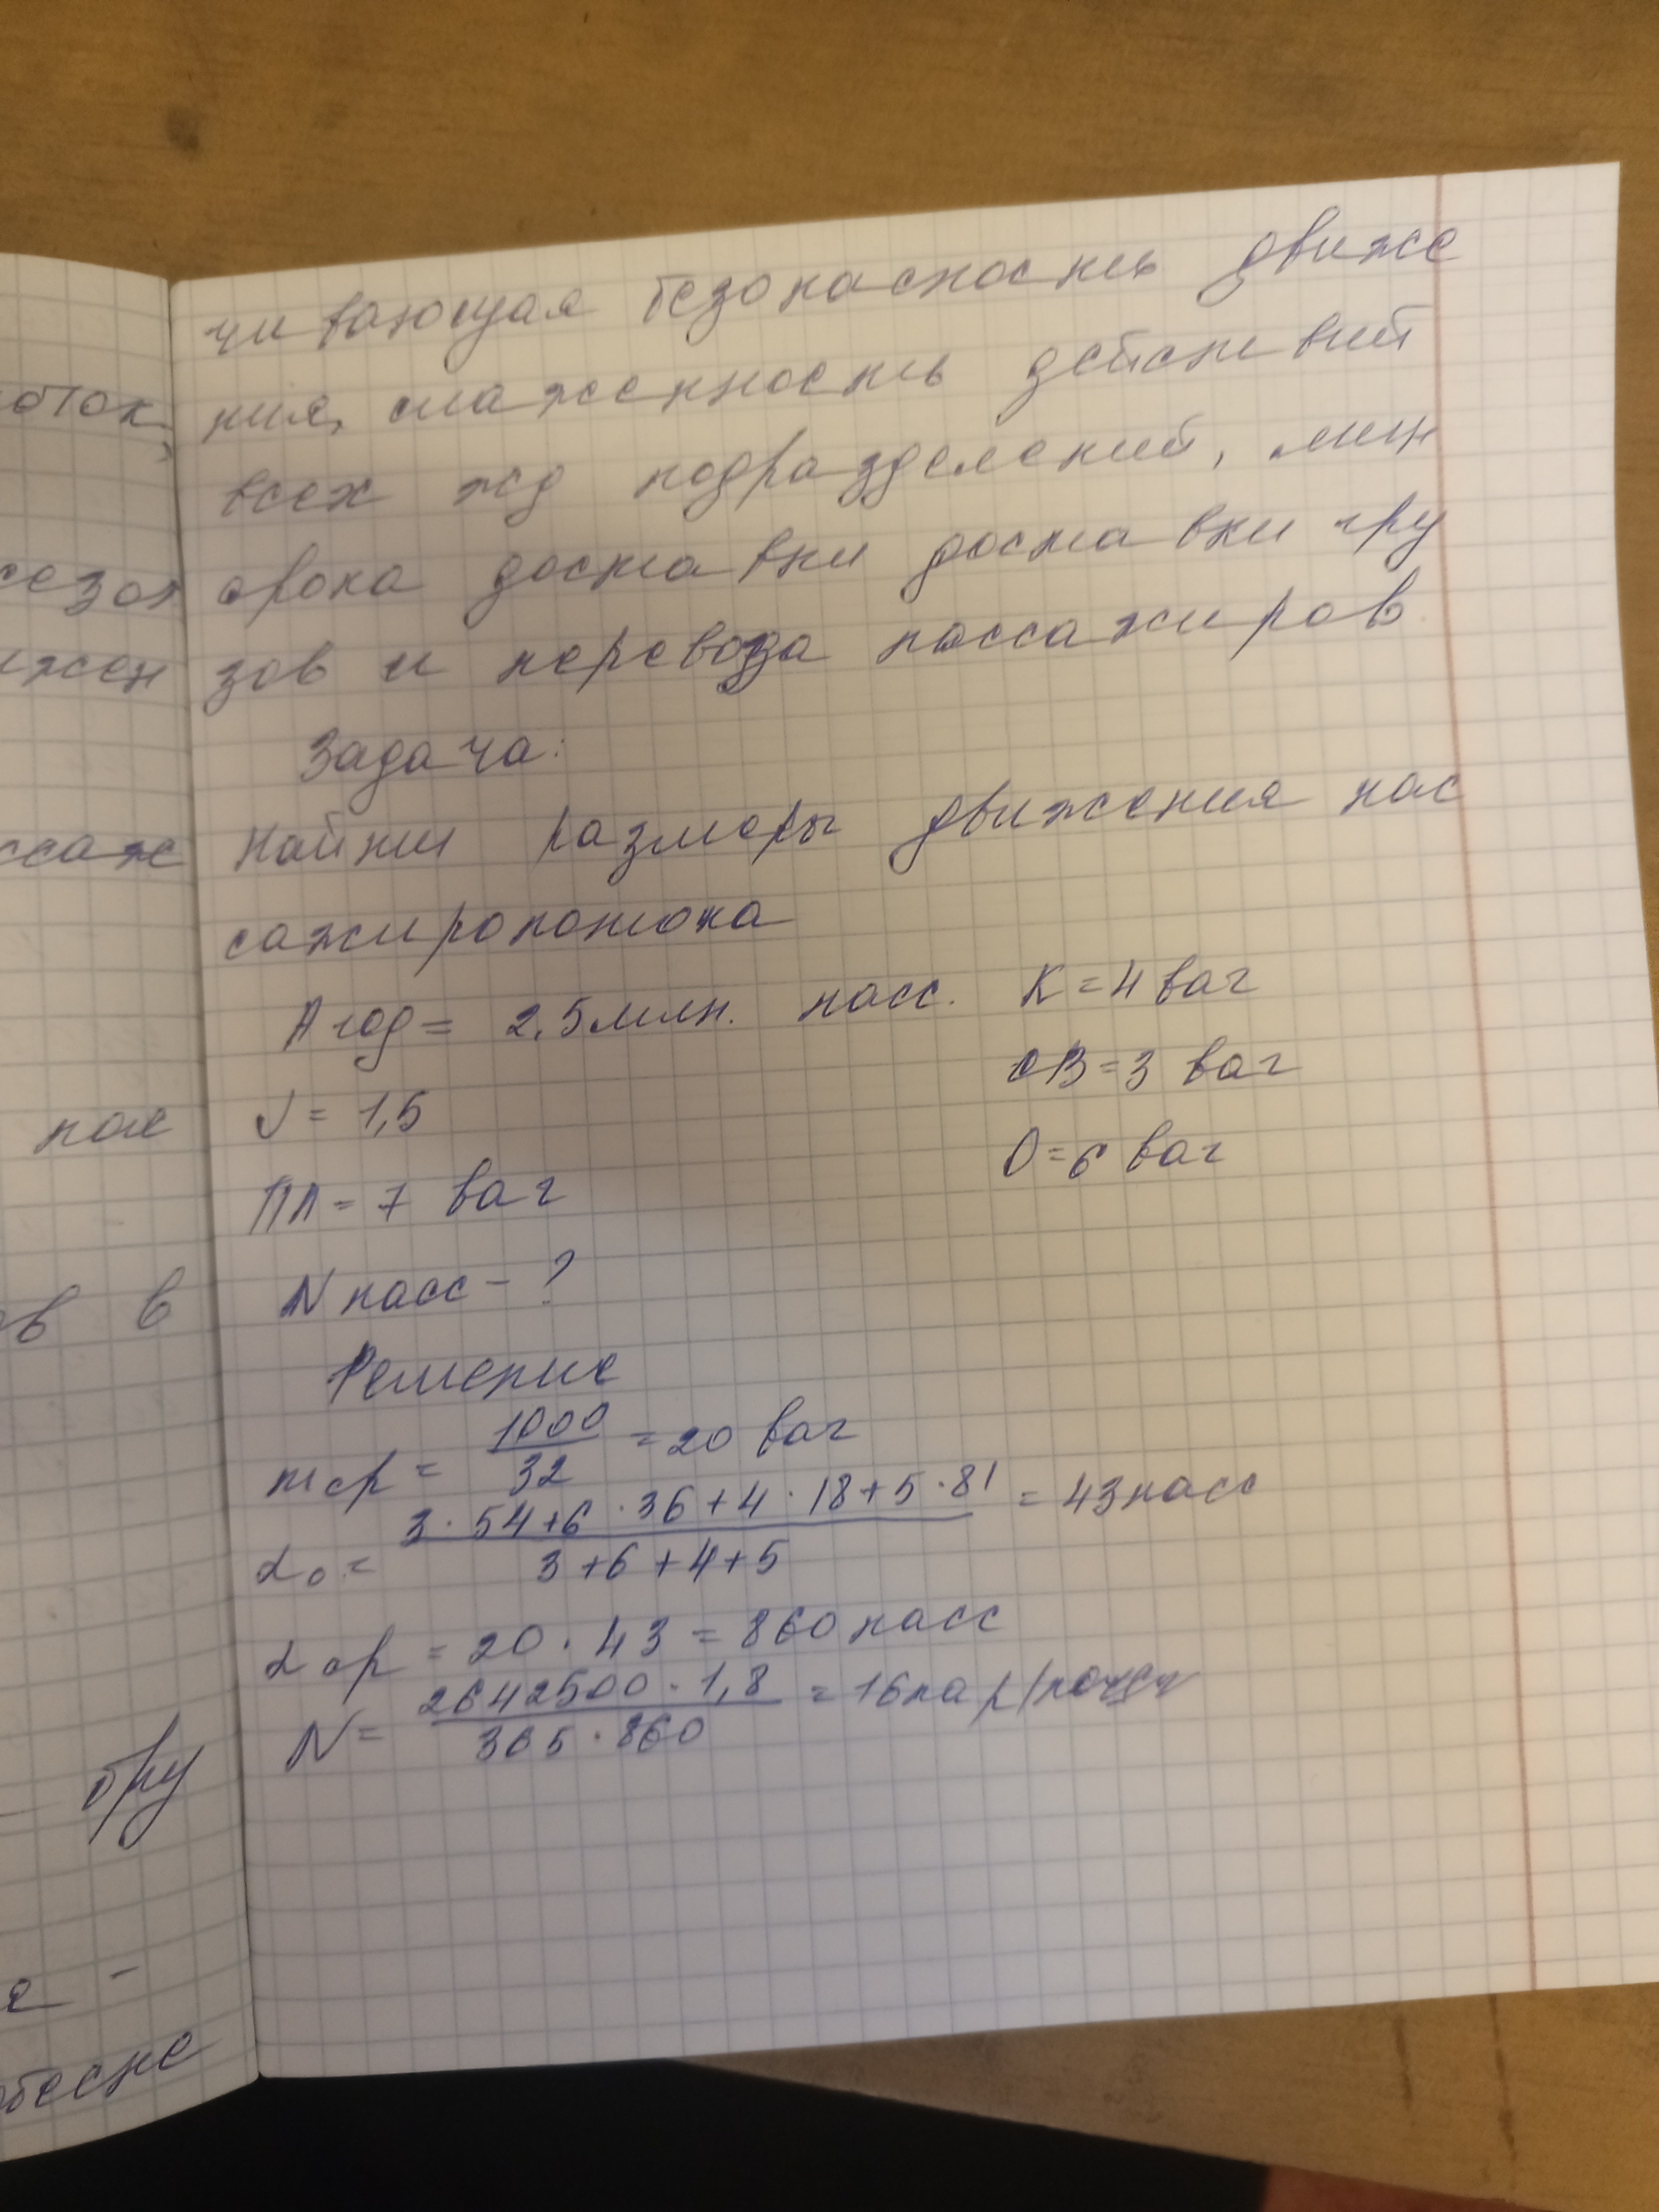 оток,
сезон
ижен
ссаж
пас
ов в
гру
е -
обеспе
чивающая безопасность движе
ния, слаженность действий
всех жд подразделений, мин
срока доставки доставки гру
зов и перевоза пассажиров
Задача:
Найти размеры движения пас
сажиропотока
Aгод = 2,5 млн. пасс. К = 4 ваг
СВ = 3 ваг
J = 1,5
О = 6 ваг
ПЛ = 7 ваг
N пасс - ?
Решение
mср = 1000/32 = 20 ваг
αо = 3·54+6·36+4·18+5·81 / 3+6+4+5 = 43 пасс
αср = 20·43 = 860 пасс
N = 2642500·1,8 / 365·860 = 16 пар/